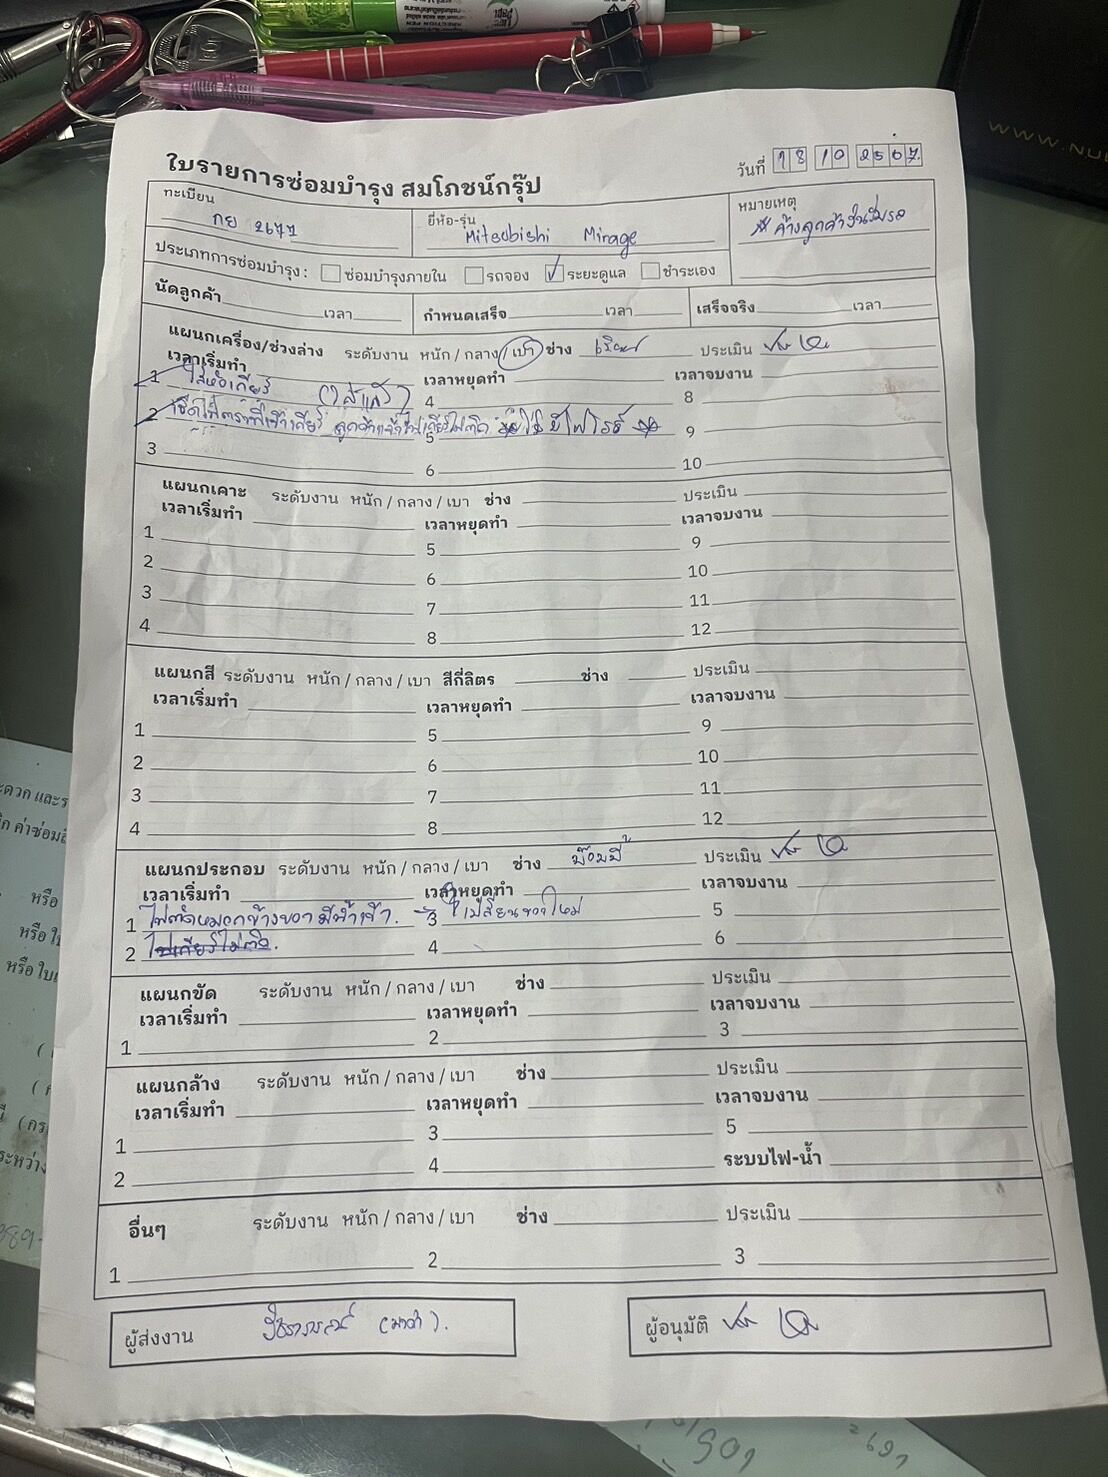 ใบรายการซ่อมบำรุง สมโภชน์กรุ๊ป
วันที่ 18 10 2567
ทะเบียน กย 2677
ยี่ห้อ-รุ่น Mitsubishi Mirage
หมายเหตุ
ประเภทการซ่อมบำรุง : ซ่อมบำรุงภายใน รถจอง ✓ ระยะดูแล ชำระเอง
นัดลูกค้า เวลา กำหนดเสร็จ เวลา เสร็จจริง เวลา
แผนกเครื่อง/ช่วงล่าง ระดับงาน หนัก / กลาง / เบา ช่าง ประเมิน
เวลาเริ่มทำ เวลาหยุดทำ เวลาจบงาน
1 ใส่หัวเกียร์ (ใส่แล้ว) 4 8
2 5 9
3 6 10
แผนกเคาะ ระดับงาน หนัก / กลาง / เบา ช่าง ประเมิน
เวลาเริ่มทำ เวลาหยุดทำ เวลาจบงาน
1 5 9
2 6 10
3 7 11
4 8 12
แผนกสี ระดับงาน หนัก / กลาง / เบา สีกี่ลิตร ช่าง ประเมิน
เวลาเริ่มทำ เวลาหยุดทำ เวลาจบงาน
1 5 9
2 6 10
3 7 11
4 8 12
แผนกประกอบ ระดับงาน หนัก / กลาง / เบา ช่าง ประเมิน
เวลาเริ่มทำ เวลาหยุดทำ เวลาจบงาน
1 ไฟตัดหมอกข้างขวา มีน้ำเข้า. → 3 เปลี่ยนของใหม่ 5
2 ไฟเกียร์ไม่ติด. 4 6
แผนกขัด ระดับงาน หนัก / กลาง / เบา ช่าง ประเมิน
เวลาเริ่มทำ เวลาหยุดทำ เวลาจบงาน
1 2 3
แผนกล้าง ระดับงาน หนัก / กลาง / เบา ช่าง ประเมิน
เวลาเริ่มทำ เวลาหยุดทำ เวลาจบงาน
1 3 5
2 4 ระบบไฟ-น้ำ
อื่นๆ ระดับงาน หนัก / กลาง / เบา ช่าง ประเมิน
1 2 3
ผู้ส่งงาน
ผู้อนุมัติ